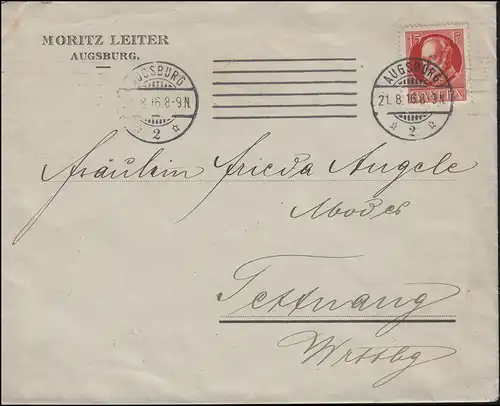 MORITZ LEITER
AUGSBURG.
AUGSBURG
8.16.8-9N.
2
AUGSBURG
21.8.16.8-9N.
2
15 Pf.
Fräulein Frieda Angele
Modes
Tettnang
Wrttbg